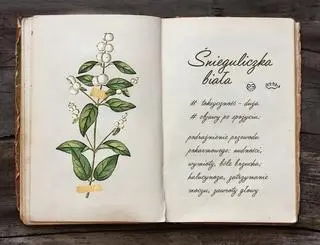 Śnieguliczka
biała
# toksyczność - duża
# objawy po spożyciu:
podrażnienie przewodu
pokarmowego: nudności,
wymioty, bóle brzucha;
halucynoza, zatrzymanie
moczu, zawroty głowy